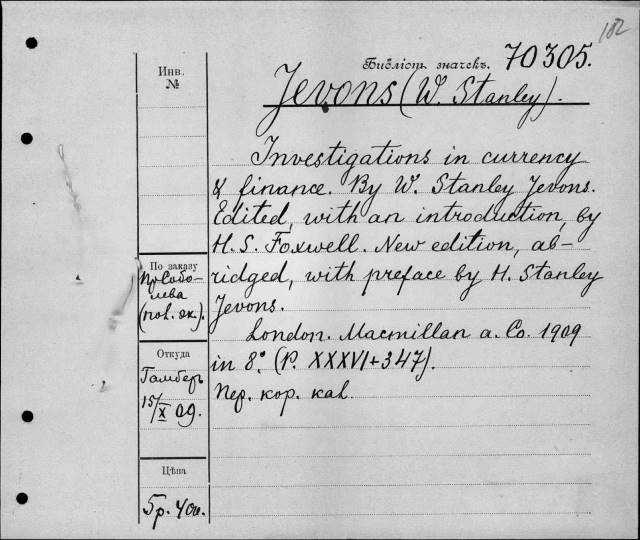 182
Библіот. значекъ. 70305.
Jevons (W. Stanley).
Инв.
№
Investigations in currency
& finance. By W. Stanley Jevons.
Edited, with an introduction, by
H. S. Foxwell. New edition, ab-
ridged, with preface by H. Stanley
Jevons.
London. Macmillan a. Co. 1909
in 8°. (P. XXXVI+347).
Пер. кор. кал.
По заказу
Откуда
15/X 09.
Цѣна
5р. 40к.